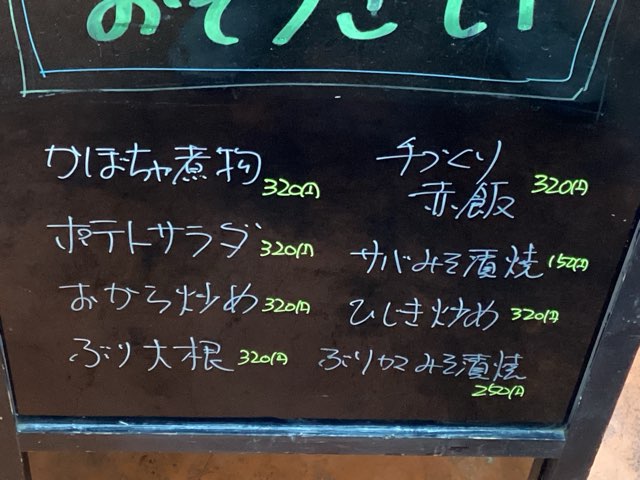 おそうざい
かぼちゃ煮物 320円
ポテトサラダ 320円
おから炒め 320円
ぶり大根 320円
手づくり
赤飯 320円
サバみそ漬焼 150円
ひじき炒め 320円
ぶりカマみそ漬焼
250円